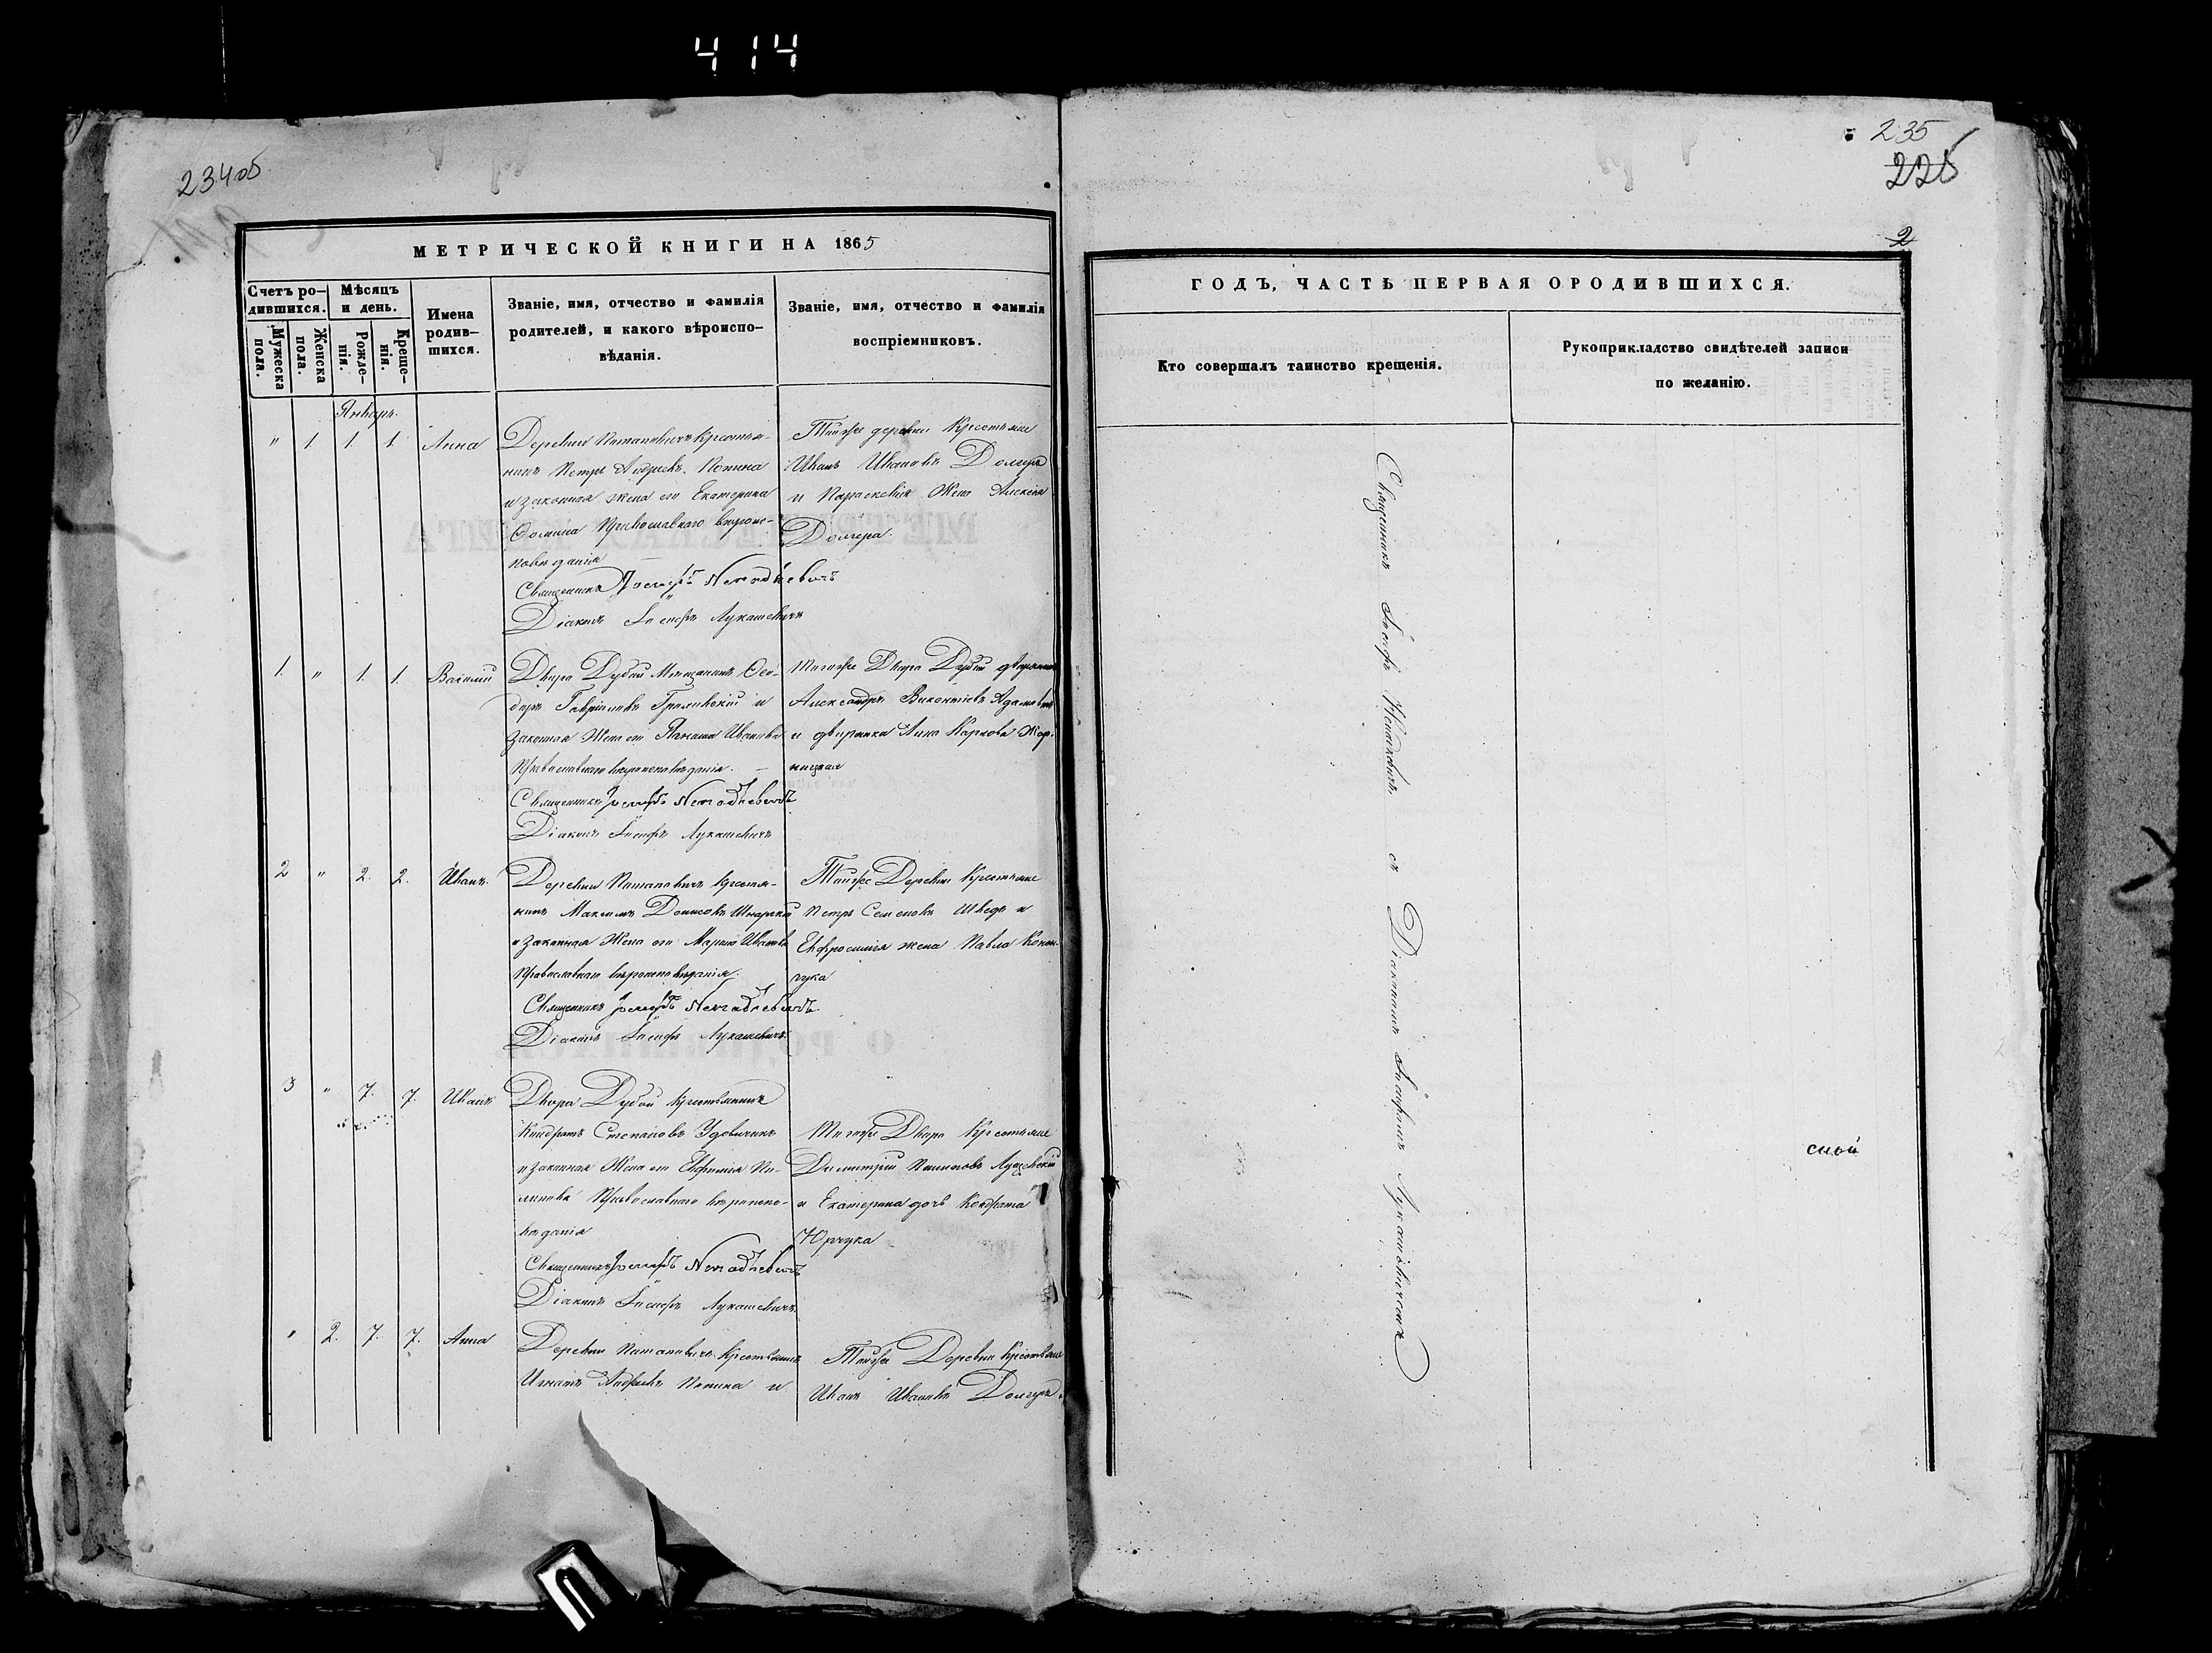 414
234об
МЕТРИЧЕСКОЙ КНИГИ НА 1865
Счетъ ро-
дившихся.
Мужеска
пола.
Женска
пола.
Мѣсяцъ
и день.
Рожде-
нія.
Креще-
нія.
Имена
родив-
шихся.
Званіе, имя, отчество и фамилія
родителей, и какого вѣроиспо-
вѣданія.
Званіе, имя, отчество и фамилія
воспріемниковъ.
Январь.
" 1 1 1 Анна
Деревни Потаповичъ Крестья-
нинъ Петръ Андреевъ
и законная жена его Екатерина
Фомина Православнаго вѣроис-
повѣданія
Священникъ Іосифъ
Діаконъ Іосифъ Лукашевичъ
Тойже деревни Крестьяне
Иванъ Ивановъ Долгеръ
и Параскевія жена Алексѣя
Долгера.
1. " 1. 1. Василій
Двора Дубой Мѣщанинъ Ѳео-
доръ Гавріиловъ и
законная жена его Ивановa
Православнаго вѣроисповѣданія.
Священникъ Іосифъ
Діаконъ Іосифъ Лукашевичъ
Тогоже Двора Дубой дворянинъ
Александръ Викентіевъ Адамовичъ
и дворянка Анна Карлова
2 " 2. 2. Иванъ.
Деревни Потаповичъ Крестья-
нинъ Максимъ Денисовъ
и законная жена его Марія Иванова
Православнаго вѣроисповѣданія.
Священникъ Іосифъ
Діаконъ Іосифъ Лукашевичъ
Тойже Деревни Крестьяне
Петръ Семеновъ Шведъ и
Евфросинія жена Павла
3 " 7. 7. Иванъ
Двора Дубой Крестьянинъ
Кондратъ Степановъ
и законная жена его Евфимія
Православнаго вѣроиспо-
вѣданія
Священникъ Іосифъ
Діаконъ Іосифъ Лукашевичъ
Тогоже Двора Крестьяне
Димитрій
и Екатерина дочь Кондрата
Юрчука
" 2. 7. 7. Анна
Деревни Потаповичъ Крестьянинъ
Игнатъ Андреевъ и
Тойже Деревни Крестьяне
Иванъ Ивановъ Долгеръ
235
225
2
ГОДЪ, ЧАСТЬ ПЕРВАЯ О РОДИВШИХСЯ.
Кто совершалъ таинство крещенія.
Рукоприкладство свидѣтелей записи
по желанію.
Священникъ Іосифъ съ Діакономъ Іосифомъ Лукашевичемъ